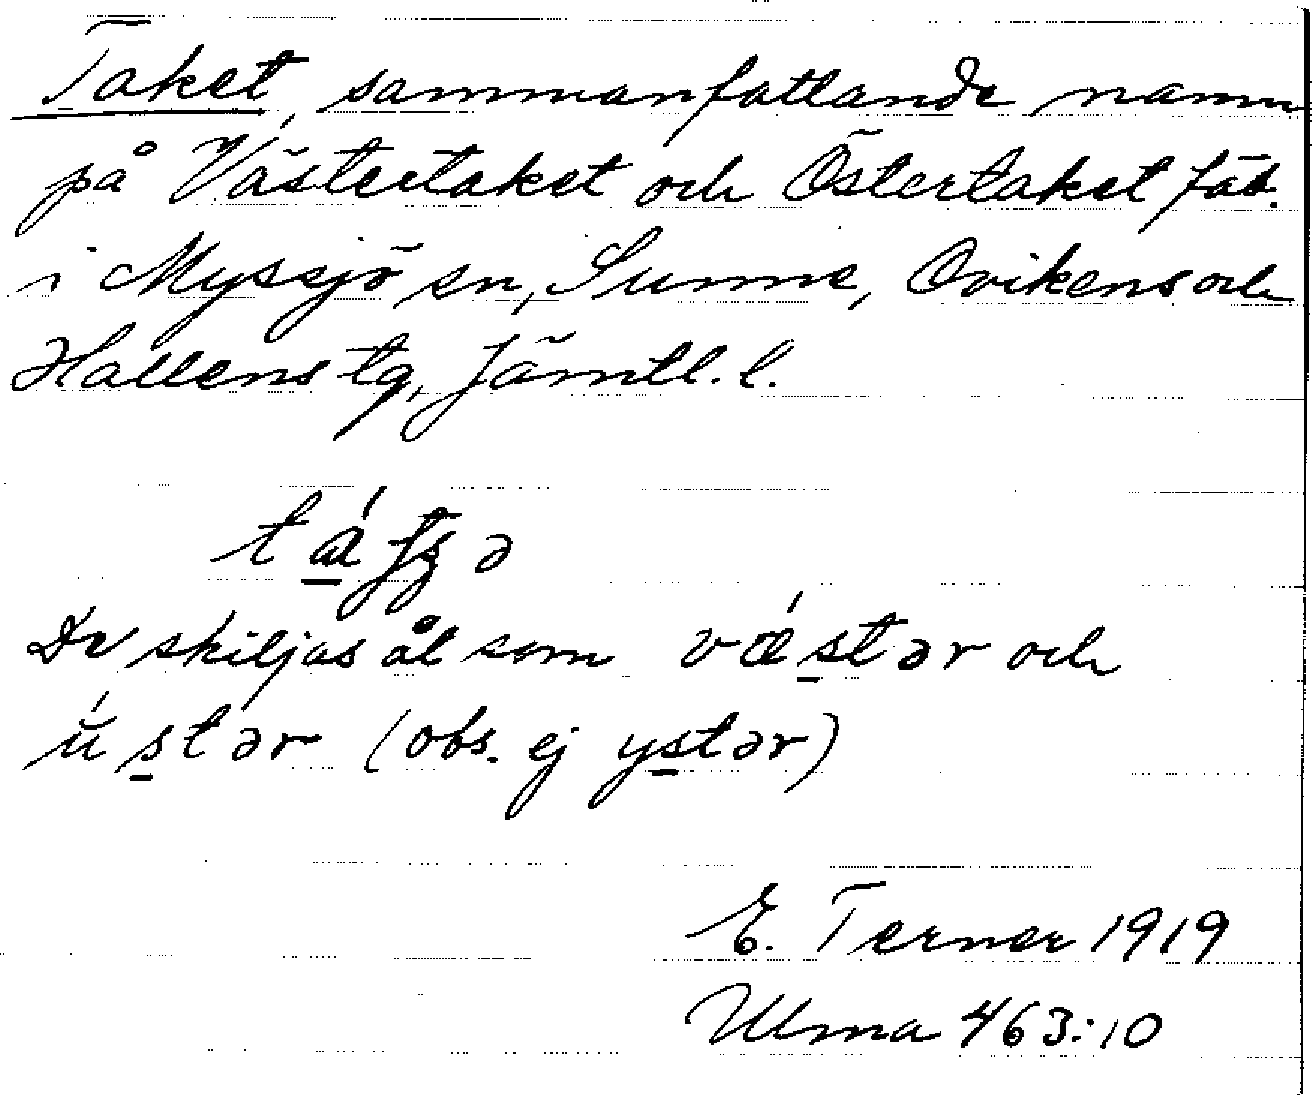 Taket, sammanfattande namn
på Västertaket och Östertaket fäb.
i Myssjö sn, Sunne, Ovikens och
Hallens tg, Jämtl. l.
De skiljas åt som vǽstər och
ú̈stər (obs. ej ystər)
E. Ternor 1919
Ulma 463:10